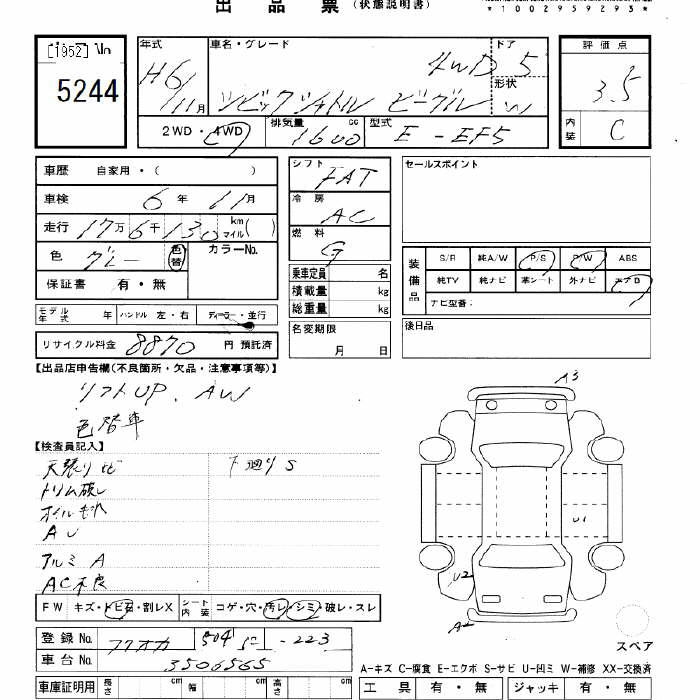 出品票(状態説明書)
*1002959293*
[1952] No
5244
年式 H6/11月
車名・グレード シビックシャトル ビーグル 4WD
ドア 5
形状 W
2WD・4WD 排気量 1600 cc 型式 E-EF5
評価点 3.5
内装 C
車歴 自家用・( )
車検 6年 11月
走行 17万6千130 km マイル( )
色 グレー 色替 カラーNo.
保証書 有・無
モデル年式 年 ハンドル 左・右 ディーラー・並行
リサイクル料金 8870 円 預託済
シフト FAT
冷房 AC
燃料 G
乗車定員 名
積載量 kg
総重量 kg
名変期限 月 日
セールスポイント
装備品 S/R 純A/W P/S P/W ABS
純TV 純ナビ 革シート 外ナビ エアB
ナビ型番:
後日品
【出品店申告欄(不良箇所・欠品・注意事項等)】
リフトUP. AW
色替車
【検査員記入】
天張り ヒビ 下廻りS
トリム破レ
オイルもれ
AU
アルミ A
AC不良
FW キズ・トビ石・割レX シート内装 コゲ・穴・汚レ・シミ・破レ・スレ
登録No. フクオカ 504 -223
車台No. 3506565
車庫証明用 長さ cm 幅 cm 高さ cm
A3
U1
U2
A2
スペア
A-キズ C-腐食 E-エクボ S-サビ U-凹ミ W-補修 XX-交換済
工具 有・無 ジャッキ 有・無